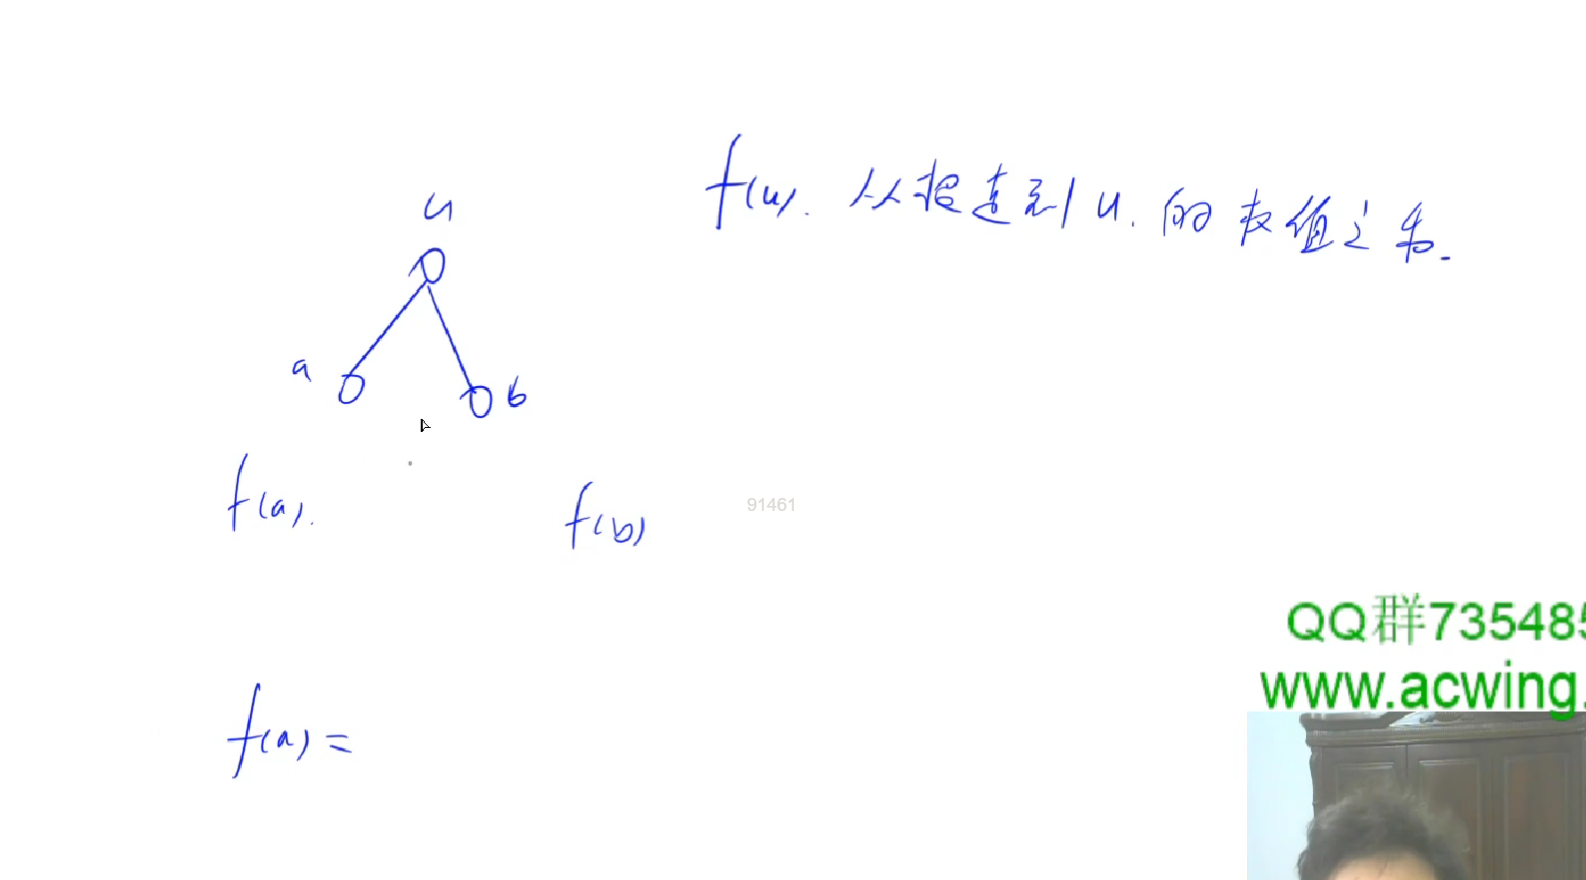 u
f(u). 从根走到 u. 的权值之和.
a
b
f(a).
f(b)
91461
QQ群735485
www.acwing.
f(a) =